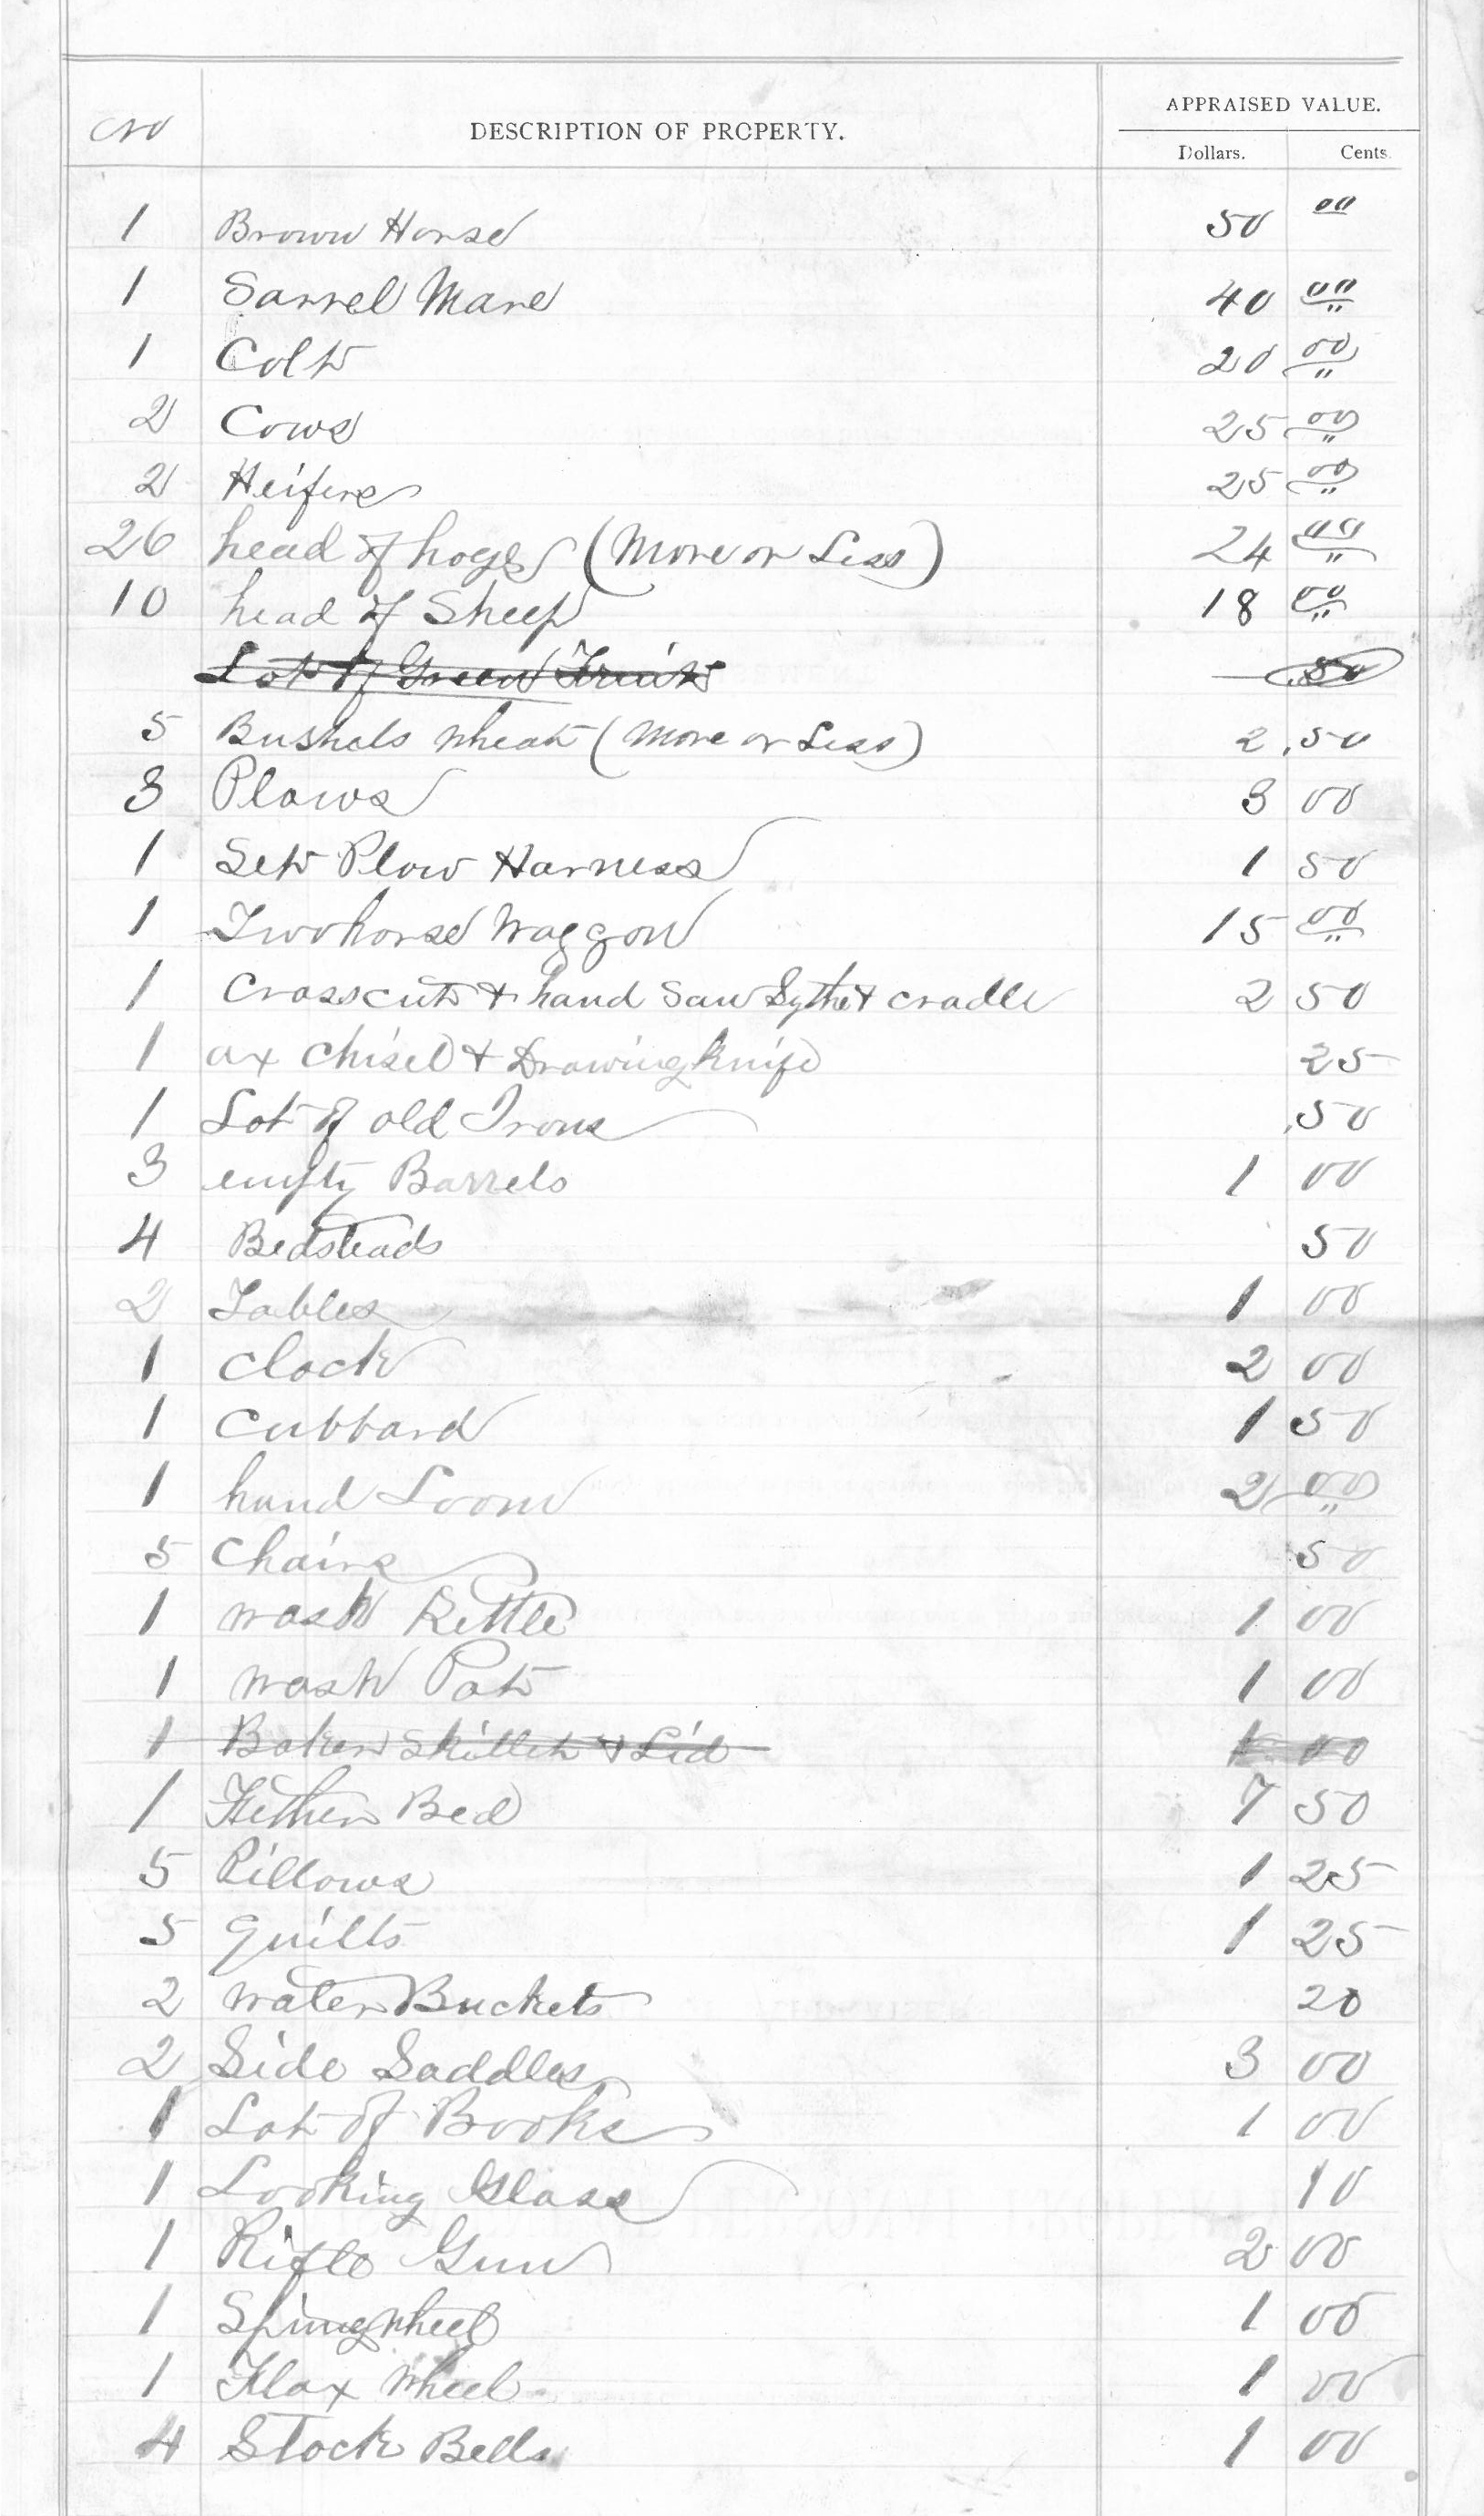 No DESCRIPTION OF PROPERTY. APPRAISED VALUE.
Dollars. Cents.
1 Brown Horse 50 00
1 Sarrel Mare 40 00
1 Colt 20 00
2 Cows 25 00
2 Heifers 25 00
26 head of hogs (More or Less) 24 00
10 head of Sheep 18 00
Lot of Green Fruit .50
5 Bushels wheat (More or Less) 2.50
3 Plows 3 00
1 Set Plow Harness 1 50
1 Twohorse Waggon 15 00
1 Crosscut & hand Saw Sythe & cradle 2 50
1 ax Chisel & Drawingknife 25
1 Lot of old Irons .50
3 empty Barrels 1 00
4 Bedsteads 50
2 Tables 1 00
1 Clock 2 00
1 Cubbard 1 50
1 hand Loom 2 00
5 Chairs 50
1 wash Kettle 1 00
1 wash Pot 1 00
1 Baker Skillet & Lid 1 00
1 Fether Bed 7 50
5 Pillows 1 25
5 quilts 1 25
2 water Buckets 20
2 Side Saddles 3 00
1 Lot of Books 1 00
1 Looking Glass 10
1 Rifle Gun 2 00
1 Spingwheel 1 00
1 Flax wheel 1 00
4 Stock Bells 1 00